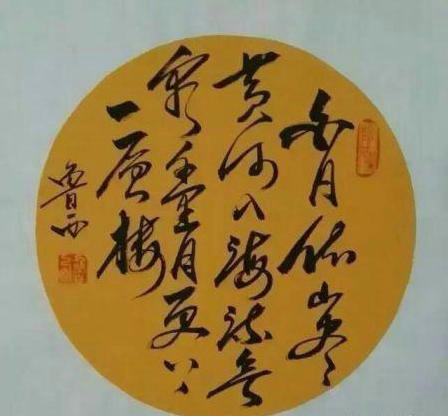 白日依山尽
黄河入海流欲
穷千里目更上
一层楼
鲁西